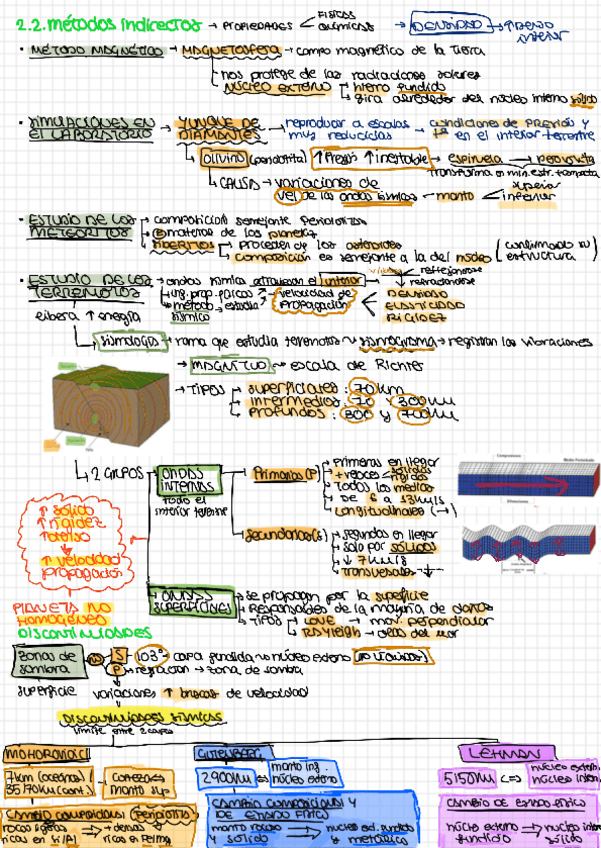 2.2. métodos indirectos → PROPIEDADES < FÍSICAS QUÍMICAS → DENSIDAD → ↑
• MÉTODO MAGNÉTICO → MAGNETOSFERA → campo magnético de la Tierra
→ nos protege de las radiaciones solares
NÚCLEO EXTERNO → hierro fundido
→ gira alrededor del núcleo interno sólido
• SIMULACIONES EN EL LABORATORIO → YUNQUE DE DIAMANTES → reproducir a escalas muy reducidas → condiciones de PRESIÓN y Tª en el interior terrestre
→ OLIVINO (peridotita) ↑Presión ↑inestable → espinela → perovskita
→ CAUSA → variaciones de vel de las ondas sísmicas → manto < superior inferior
• ESTUDIO DE LOS METEORITOS → composición semejante Peridotitas
materia de los planetas
FIBERITOS → proceden de los asteroides
composición es semejante a la del núcleo (confirmado su estructura)
• ESTUDIO DE LOS TERREMOTOS → ondas sísmica atraviesan el interior → reflexionarse refractarse
→ método sísmico → estudia velocidad de propagación < DENSIDAD ELASTICIDAD RIGIDEZ
libera ↑ energía
→ Sismología → rama que estudia terremotos ~ sismograma → registran las vibraciones
→ MAGNITUD → escala de Richter
→ TIPOS → superficiales: 70 km
→ intermedios: 70 y 300 km
→ profundos: 300 y 700 km
↳ 2 GRUPOS → ONDAS INTERNAS todo el interior terrestre → Primarias (P) → Primeras en llegar
→ Todos los medios
→ DE 6 a 13 km/s
→ Longitudinales (→)
→ secundarias (s) → segundas en llegar
→ solo por sólidos
→ ↓ 7 km/s
→ transversales
↑ sólido
↑ rigidez
↑ velocidad propagación
→ ONDAS SUPERFICIALES → se propagan por la superficie
→ Responsables de la mayoría de daños
→ TIPOS → LOVE → mov. perpendicular
→ RAYLEIGH → olas del mar
PLANETA NO HOMOGÉNEO
DISCONTINUIDADES
zonas de sombra → S → 103° → capa fundida → núcleo externo (no líquidos)
P → refracción → zona de sombra
superficie variaciones ↑ bruscas de velocidad
DISCONTINUIDADES SÍSMICAS
límite entre 2 capas
MOHOROVICIC
7 km (océanos) / 35-70 km (cont.) → corteza ↔ manto sup
CAMBIO COMPOSICIONAL (Peridotita)
rocas ligeras ricas en Si/Al → + densas ricas en Fe/Mg
GUTENBERG
2900 km ↔ manto inf núcleo externo
CAMBIO COMPOSICIONAL Y DE ESTADO FÍSICO
manto rocoso y sólido → núcleo ext. fundido y metálico
LEHMAN
5150 km ↔ núcleo extern. núcleo intern.
CAMBIO DE ESTADO FÍSICO
núcleo externo fundido → núcleo interno sólido